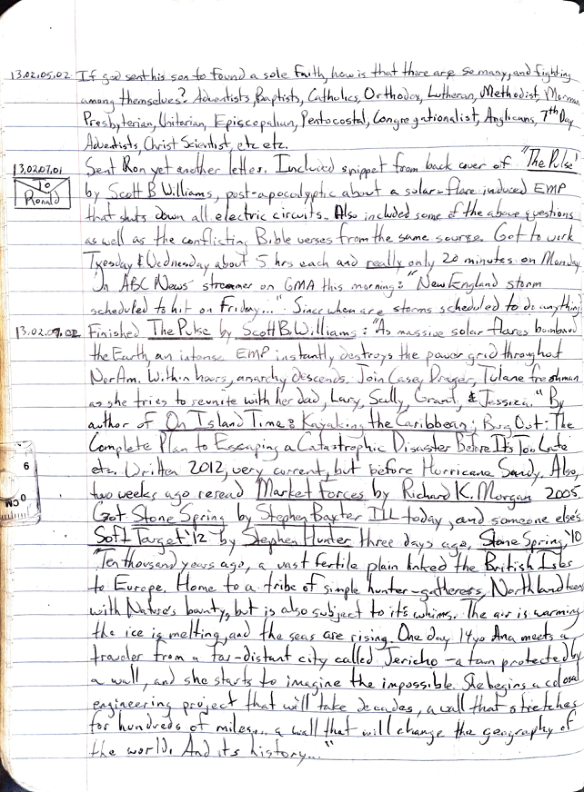 13.02.05.02 If god sent his son to found a sole Faith, how is that there are so many, and fighting
among themselves? Adventists, Baptists, Catholics, Orthodox, Lutheran, Methodist, Mormon
Presbyterian, Unitarian, Episcepalian, Pentacostal, Congregationalist, Anglicans, 7th Day
Adventists, Christ Scientist, etc etc.
13.02.07.01 Sent Ron yet another letter. Included snippet from back cover of "The Pulse"
To Ronald
by Scott B Williams, post-apocolyptic about a solar-flare induced EMP
that shuts down all electric circuits. Also included some of the above questions
as well as the conflicting Bible verses from the same source. Got to work
Tuesday & Wednesday about 5 hrs each and really only 20 minutes on Monday.
On ABC News' streamer on GMA this morning: "New England storm
scheduled to hit on Friday..." Since when are storms scheduled to do anything
13.02.07.02 Finished The Pulse by Scott B Williams: "As massive solar flares bombard
the Earth, an intense EMP instantly destroys the power grid throughout
NorAm. Within hours, anarchy descends. Join Casey Drager, Tulane freshman
as she tries to reunite with her dad, Lary, Scully, Grant, & Jessica." By
author of On Island Time: Kayaking the Caribbean; Bug Out: The
Complete Plan to Escaping a Catastrophic Disaster Before It's Too Late
etc. Written 2012, very current, but before Hurricane Sandy. Also,
two weeks ago reread Market Forces by Richard K. Morgan 2005.
Got Stone Spring by Stephen Baxter ILL today, and someone else's
Soft Target '12 by Stephen Hunter three days ago. Stone Spring, '10
"Ten thousand years ago, a vast fertile plain linked the British Isles
to Europe. Home to a tribe of simple hunter-gatherers, Northland teems
with Nature's bounty, but is also subject to it's whims. The air is warming
the ice is melting, and the seas are rising. One day 14yo Ana meets a
traveler from a far-distant city called Jericho - a town protected by
a wall, and she starts to imagine the impossible. She begins a colosal
engineering project that will take decades, a wall that stretches
for hundreds of miles... a wall that will change the geography of
the world. And its history..."
6
No